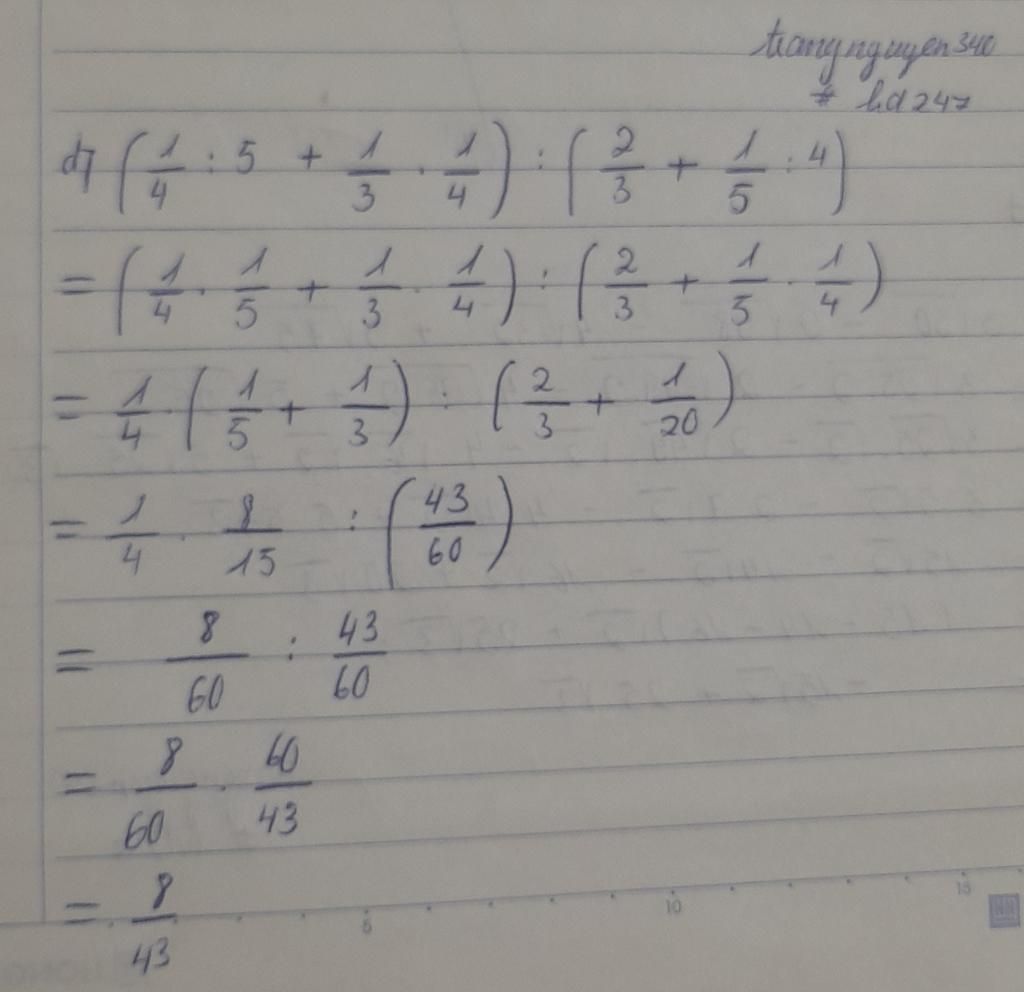 trangnguyen340
# hd247
d) (1/4 : 5 + 1/3 . 1/4) : (2/3 + 1/5 : 4)
= (1/4 . 1/5 + 1/3 . 1/4) : (2/3 + 1/5 . 1/4)
= 1/4 . (1/5 + 1/3) : (2/3 + 1/20)
= 1/4 . 8/15 : (43/60)
= 8/60 : 43/60
= 8/60 . 60/43
= 8/43
5 10 15